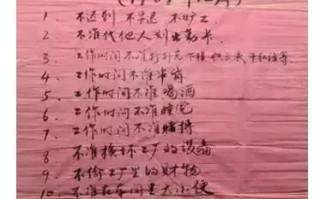 1. 不迟到 不早退 不旷工
2. 不准代他人刻出勤卡
3. 工作时间不准打扑克下棋
4. 工作时间不准
5. 工作时间不准喝酒
6. 工作时间不准睡觉
7. 工作时间不准赌博
8. 不准损坏工厂的设备
9. 不偷工厂里的财物
10. 不准在车间里大小便